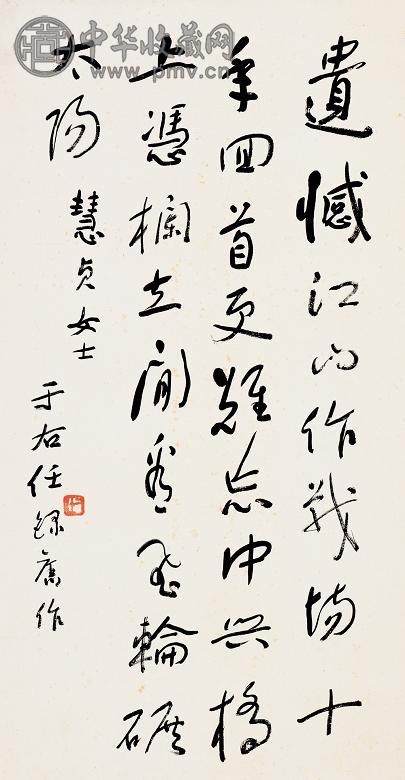 中华收藏网
www.pmv.cn
遺憾江山作戰場十
年回首更難忘中興橋
上憑欄立閒看飛輪碾
太陽 慧貞女士
于右任錄舊作